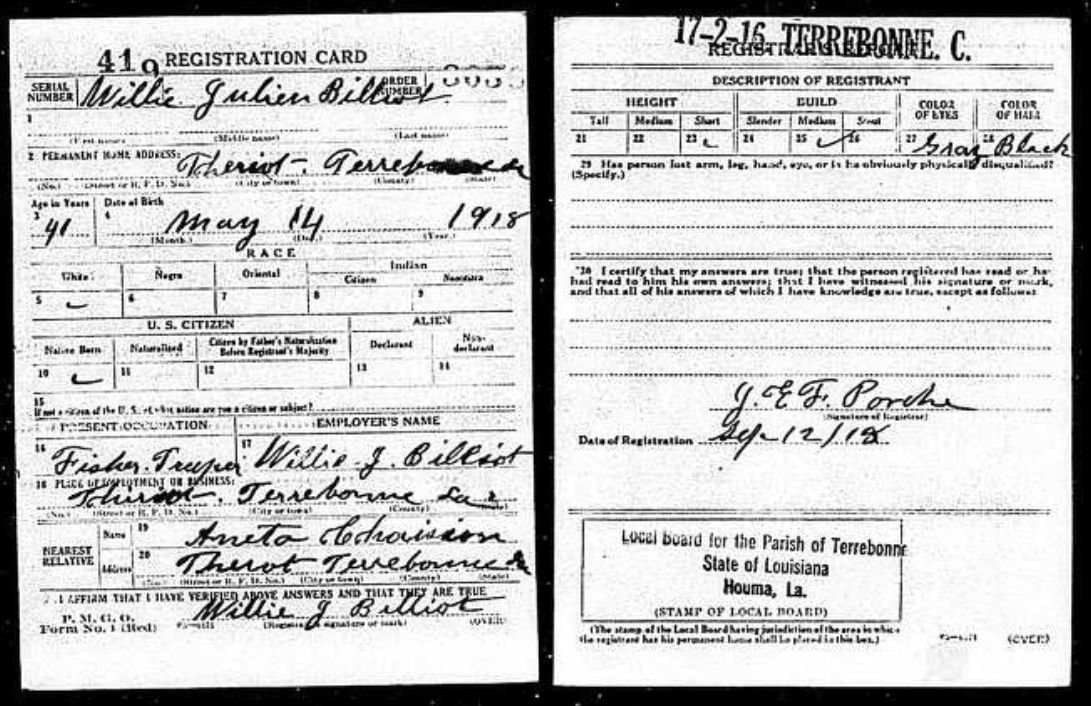 419 REGISTRATION CARD
SERIAL NUMBER
ORDER NUMBER
Willie Julien Billiot
1
(First name) (Middle name) (Last name)
2 PERMANENT HOME ADDRESS:
Theriot - Terrebonne La
(No.) (Street or R. F. D. No.) (City or town) (County) (State)
Age in Years Date of Birth
3 4
41 May 14 1918
(Month.) (Day.) (Year.)
RACE
White Negro Oriental Indian
Citizen Noncitizen
5 6 7 8 9
U. S. CITIZEN ALIEN
Native Born Naturalized Citizen by Father's Naturalization Before Registrant's Majority Declarant Non-declarant
10 11 12 13 14
15
If not a citizen of the U. S., of what nation are you a citizen or subject?
PRESENT OCCUPATION EMPLOYER'S NAME
16 17
Fisher. Traper Willie J. Billiot
18 PLACE OF EMPLOYMENT OR BUSINESS:
Theriot. Terrebonne La
(No.) (Street or R. F. D. No.) (City or town) (County) (State)
NEAREST RELATIVE
Name 19 Aneta Chaission
Address 20 Theriot Terrebonne La
(No.) (Street or R. F. D. No.) (City or town) (County) (State)
I AFFIRM THAT I HAVE VERIFIED ABOVE ANSWERS AND THAT THEY ARE TRUE
P. M. G. O.
Form No. 1 (Red)
Willie J Billiot
(Registrant's signature or mark) (OVER)
17-2-16 TERREBONNE. C.
DESCRIPTION OF REGISTRANT
HEIGHT BUILD COLOR OF EYES COLOR OF HAIR
Tall Medium Short Slender Medium Stout
21 22 23 24 25 26 27 Gray 28 Black
29 Has person lost arm, leg, hand, eye, or is he obviously physically disqualified?
(Specify.)
30 I certify that my answers are true; that the person registered has read or has
had read to him his own answers; that I have witnessed his signature or mark,
and that all of his answers of which I have knowledge are true, except as follows:
J. E. F. Porche
(Signature of Registrar)
Date of Registration Sep 12/18
Local Board for the Parish of Terrebonne
State of Louisiana
Houma, La.
(STAMP OF LOCAL BOARD)
(The stamp of the Local Board having jurisdiction of the area in which
the registrant has his permanent home shall be placed in this box.)
(OVER)